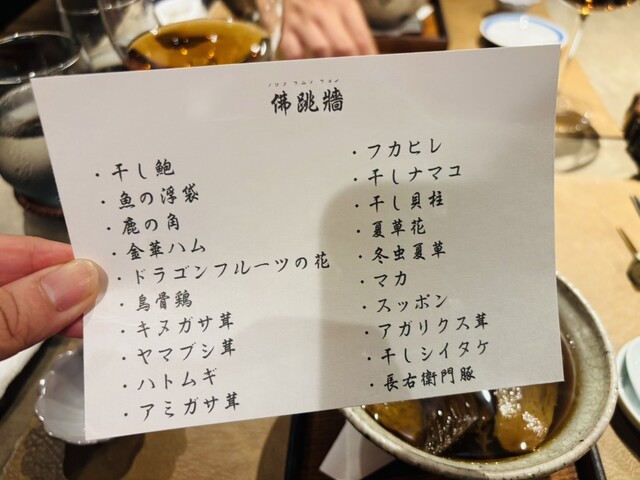 佛跳牆
・干し鮑
・魚の浮袋
・鹿の角
・金華ハム
・ドラゴンフルーツの花
・烏骨鶏
・キヌガサ茸
・ヤマブシ茸
・ハトムギ
・アミガサ茸
・フカヒレ
・干しナマコ
・干し貝柱
・夏草花
・冬虫夏草
・マカ
・スッポン
・アガリクス茸
・干しシイタケ
・長右衛門豚